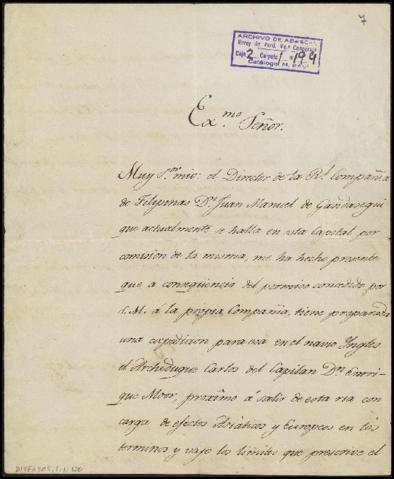 7
ARCHIVO DE ABASCAL
Virrey de Perú, Mqs Concordia
Caja 2 Carpeta 1 n 194
Catálogo M. RAV
Ex.mo Señor.
Muy S.or mio: el Director de la R.l Compañia
de Filipinas Dn Juan Manuel de Gandasegui
que actualmente se halla en esta Capital por
comision de la misma, me ha hecho presente
que a conseqüencia del permiso concedido por
S.M. á la propia Compañia, tiene preparada
una expedicion para esa en el navio Ingles
el Archiduque Carlos del Capitan Dn Enrri-
que Moor, proximo á salir de esta ria con
carga de efectos Asiáticos y Europeos en los
terminos y vajo los limites que prescrive el
DIVERSOS, 1, N. 120